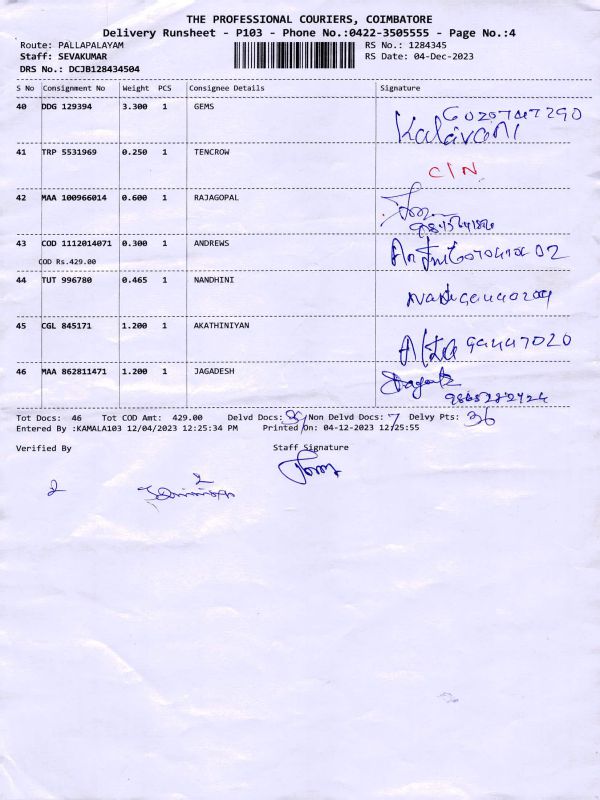 THE PROFESSIONAL COURIERS, COIMBATORE
Delivery Runsheet - P103 - Phone No.:0422-3505555 - Page No.:4
Route: PALLAPALAYAM RS No.: 1284345
Staff: SEVAKUMAR RS Date: 04-Dec-2023
DRS No.: DCJB128434504
S No Consignment No Weight PCS Consignee Details Signature
40 DDG 129394 3.300 1 GEMS
Kalavani
41 TRP 5531969 0.250 1 TENCROW
C/N
42 MAA 100966014 0.600 1 RAJAGOPAL
43 COD 1112014071 0.300 1 ANDREWS
COD Rs.429.00
44 TUT 996780 0.465 1 NANDHINI
45 CGL 845171 1.200 1 AKATHINIYAN
46 MAA 862811471 1.200 1 JAGADESH
Tot Docs: 46 Tot COD Amt: 429.00 Delvd Docs: 39 Non Delvd Docs: 7 Delvy Pts: 36
Entered By :KAMALA103 12/04/2023 12:25:34 PM Printed On: 04-12-2023 12:25:55
Verified By Staff Signature